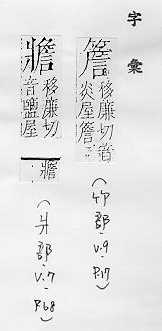 字彙
簷
移廉切音
炎屋簷
(竹部-V.9-P.17)
移廉切
音鹽屋
(爿部-V.7-P.68)